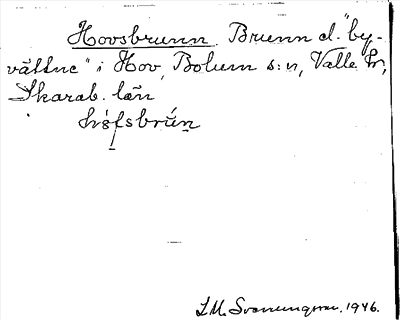 Hovsbrunn. Brunn el. "by-
vättne" i Hov, Bolum s:n, Valle hd,
Skarab. län
hófsbrún
L.M. Svanungsson. 1946.